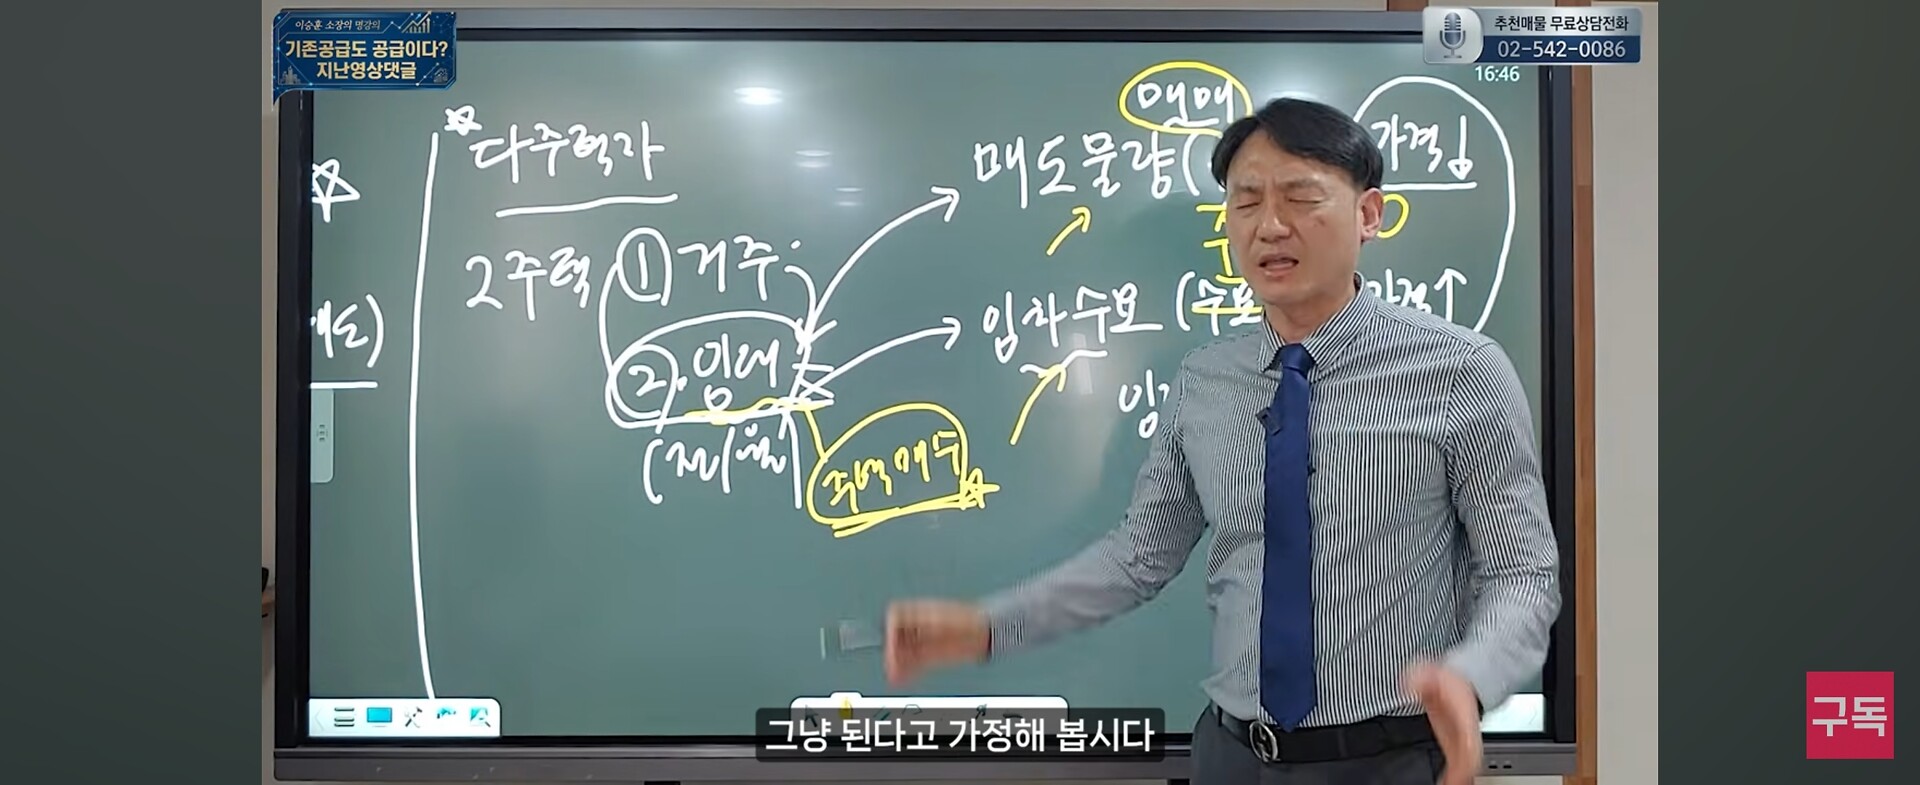 이승훈 소장의 명강의
기존공급도 공급이다?
지난영상댓글
추천매물 무료상담전화
02-542-0086
16:46
다주택자
2주택
① 거주
② 임대
(전/월)
주택매수
매매
매도물량(
가격↓
임차수요 (수요
가격↑
매도)
그냥 된다고 가정해 봅시다
구독